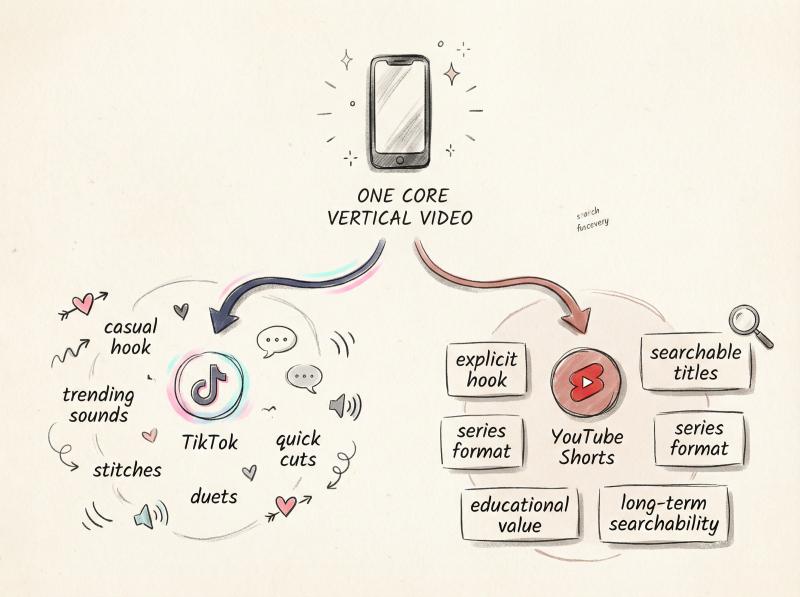 ONE CORE
VERTICAL VIDEO
search
fuscevery
casual
hook
trending
sounds
stitches
duets
quick
cuts
TikTok
explicit
hook
searchable
titles
series
format
YouTube
Shorts
series
format
educational
value
long-term
searchability